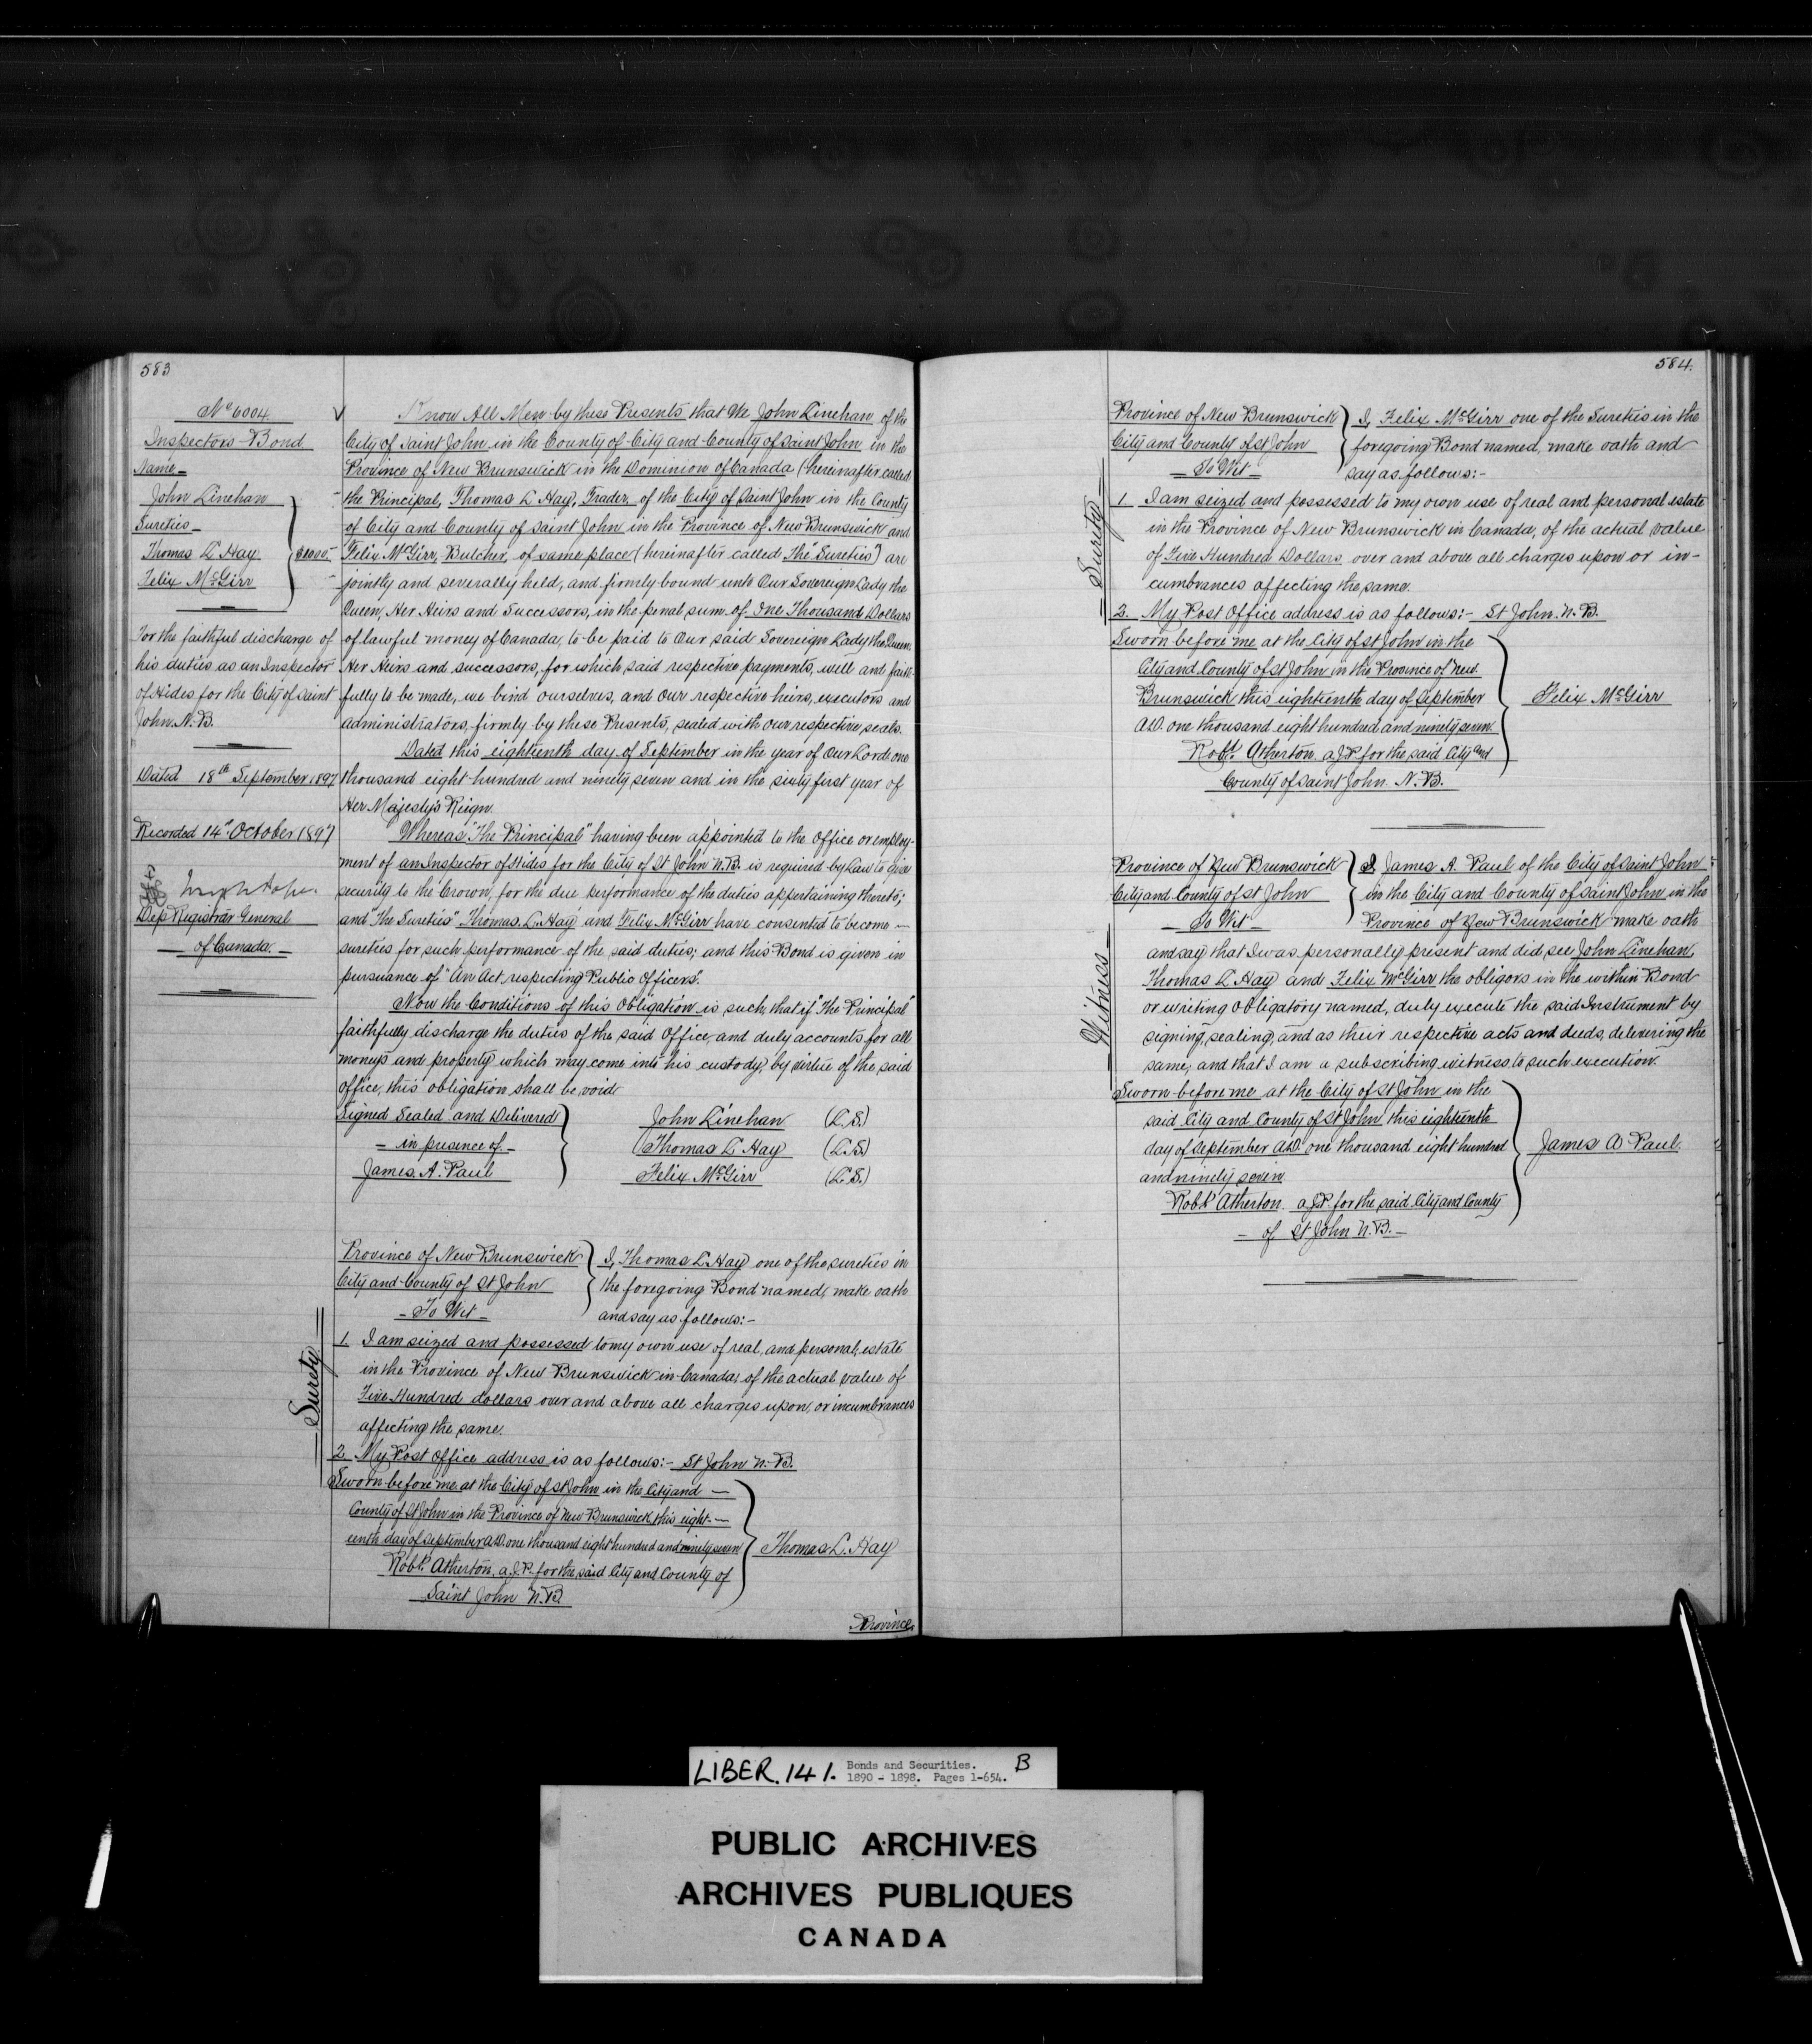 583
No 6004.
Inspectors Bond
Name-
John Linehan
Sureties-
Thomas L Hay
Felix McGirr
$1000.-
For the faithful discharge of
his duties as an Inspector
of Hides for the City of Saint
John. N.B.
Dated 18th September 1897
Recorded 14th October 1897
Dep Registrar General
- of Canada. -
Know All Men by these Presents that We John Linehan of the
City of Saint John in the County of City and County of Saint John in the
Province of New Brunswick in the Dominion of Canada (hereinafter called
the Principal, Thomas L Hay, Trader, of the City of Saint John in the County
of City and County of Saint John in the Province of New Brunswick and
Felix McGirr, Butcher, of same place (hereinafter called The "Sureties") are
jointly and severally held, and firmly bound unto Our Sovereign Lady the
Queen, Her Heirs and Successors, in the penal sum of One Thousand Dollars
of lawful money of Canada, to be paid to Our said Sovereign Lady the Queen,
Her Heirs and successors, for which said respective payments, well and faith-
fully to be made, we bind ourselves, and our respective heirs, executors and
administrators, firmly by these Presents, sealed with our respective seals.
Dated this eighteenth day of September in the year of Our Lord one
thousand eight hundred and ninety seven and in the sixty first year of
Her Majesty's Reign.
Whereas "The Principal" having been appointed to the Office or employ-
ment of an Inspector of Hides for the City of St John N.B. is required by Law to give
security to the Crown, for the due performance of the duties appertaining thereto;
and "The Sureties" Thomas. L. Hay and Felix McGirr have consented to become -
sureties for such performance of the said duties; and this Bond is given in
pursuance of "An Act respecting Public Officers".
Now the Conditions of this Obligation is such, that if "The Principal"
faithfully discharge the duties of the said Office, and duly accounts for all
moneys and property which may come into his custody, by virtue of the said
office, this obligation shall be void
Signed Sealed and Delivered
- in presence of -
James. A. Paul
John Linehan (L.S.)
Thomas L Hay (L.S.)
Felix McGirr (L.S.)
Province of New Brunswick
City and County of St John
- To Wit -
I, Thomas L Hay one of the sureties in
the foregoing Bond named, make oath
and say as follows:-
Surety
1. I am seized and possessed to my own use of real, and personal, estate
in the Province of New Brunswick in Canada, of the actual value of
Five Hundred dollars over and above all charges upon, or incumbrances
affecting the same.
2. My Post Office address is as follows:- St John N.B.
Sworn before me at the City of St John in the City and -
County of St John in the Province of New Brunswick, this eight -
eenth day of September A.D. one thousand eight hundred and ninety seven
Robt. Atherton, a J.P. for the said City and County of
Saint John N.B.
Thomas L. Hay
Province
584.
Province of New Brunswick
City and County of St John
- To Wit -
I, Felix McGirr one of the Sureties in the
foregoing Bond named, make oath and
say as follows:-
Surety
1 I am seized and possessed to my own use of real and personal estate
in the Province of New Brunswick in Canada, of the actual value
of Five Hundred Dollars over and above all charges upon or in-
cumbrances affecting the same.
2. My Post Office address is as follows:- St John. N.B.
Sworn before me at the City of St John in the
City and County of St John in the Province of New
Brunswick this eighteenth day of September
A.D. one thousand eight hundred and ninety seven.
Robt. Atherton a J.P. for the said City and
County of Saint John. N.B.
Felix McGirr
Province of New Brunswick
City and County of St John
- To Wit -
I, James A. Paul of the City of Saint John
in the City and County of Saint John in the
Province of New Brunswick make oath
Witness
and say that I was personally present and did see John Linehan,
Thomas L Hay and Felix McGirr, the obligors in the within Bond
or writing Obligatory named, duly execute the said Instrument by
signing, sealing, and as their respective acts and deeds, delivering the
same, and that I am a subscribing witness to such execution.
Sworn before me at the City of St John in the
said City and County of St John this eighteenth
day of September A.D. one thousand eight hundred
and ninety seven
Robt Atherton. a J.P. for the said City and County
- of St John N.B. -
James A Paul.
LIBER. 141. Bonds and Securities. B
1890 - 1898. Pages 1-654.
PUBLIC ARCHIVES
ARCHIVES PUBLIQUES
CANADA